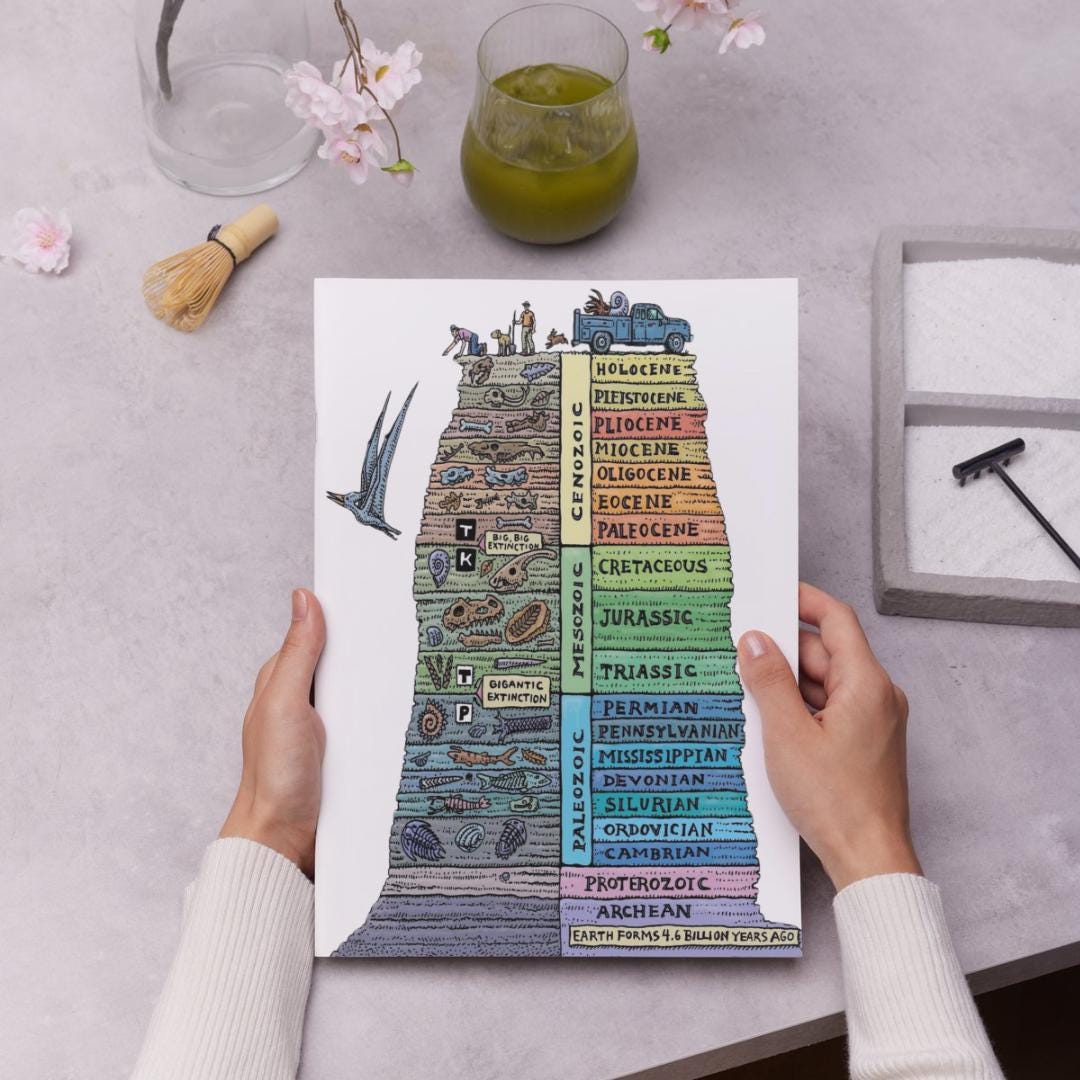 HOLOCENE
PLEISTOCENE
PLIOCENE
MIOCENE
OLIGOCENE
EOCENE
PALEOCENE
CENOZOIC
T
BIG, BIG
EXTINCTION
K
CRETACEOUS
JURASSIC
TRIASSIC
MESOZOIC
T
GIGANTIC
EXTINCTION
P
PERMIAN
PENNSYLVANIAN
MISSISSIPPIAN
DEVONIAN
SILURIAN
ORDOVICIAN
CAMBRIAN
PALEOZOIC
PROTEROZOIC
ARCHEAN
EARTH FORMS 4.6 BILLION YEARS AGO